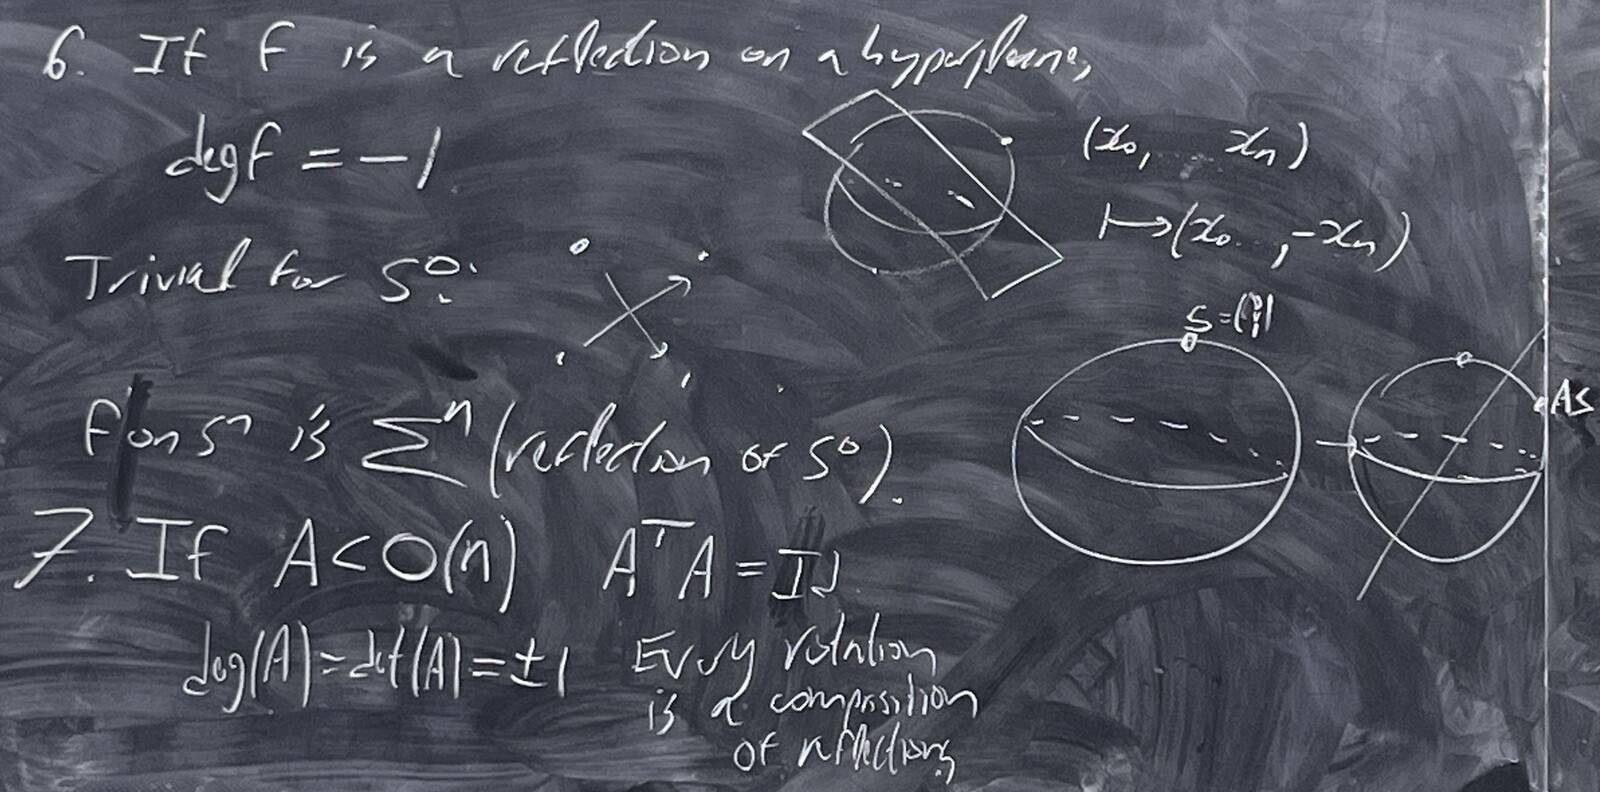 6. If f is a reflection on a hyperplane,
deg f = -1
(x₀, xₙ)
↦ (x₀.. , -xₙ)
Trivial for S⁰:
f on Sⁿ is Σⁿ (reflection of S⁰).
AS
7. If A < O(n) AᵀA = Id
deg(A) = det(A) = ±1 Every rotation
is a composition
of reflections